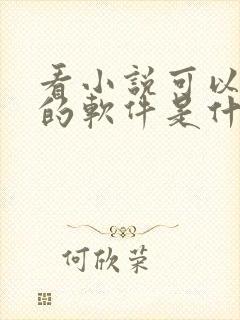 看小説可以
的軟件是什
何欣荣